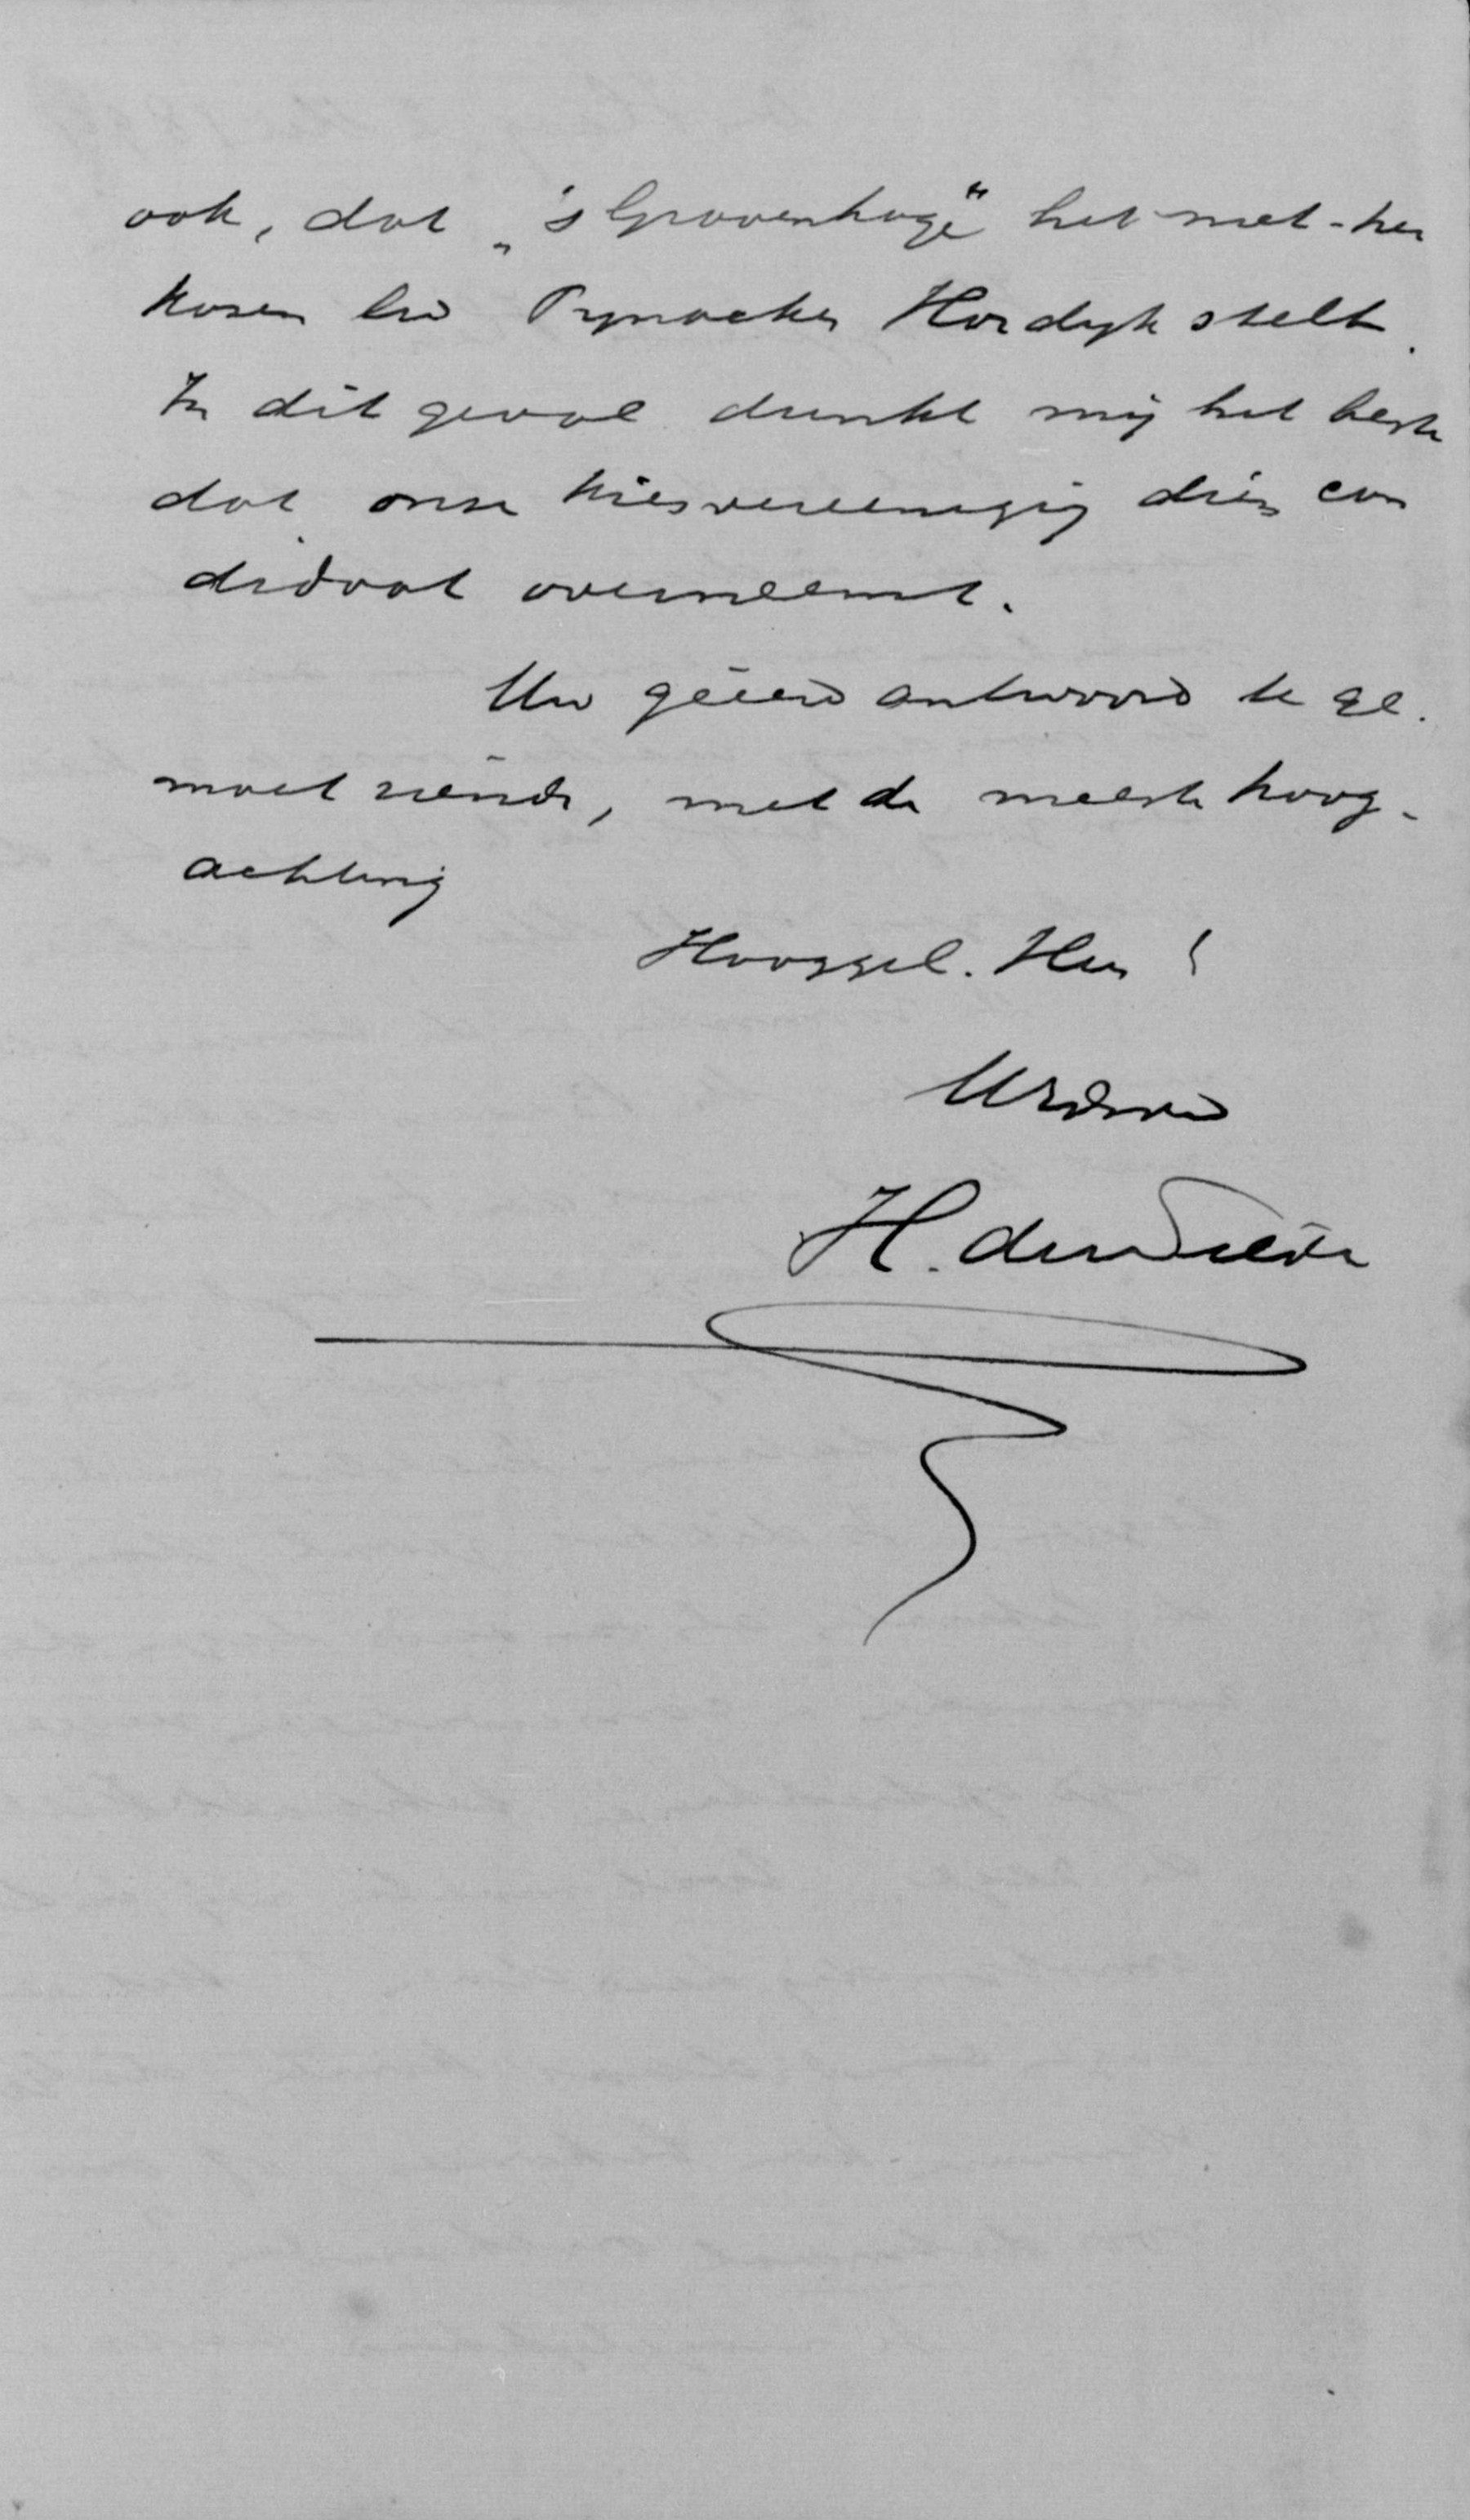 ook, dat „'s Gravenhage" het niet-her
kozen lid Pynacker Hordyk stelt.
In dit geval dunkt mij het beste
dat onze kiesvereeniging dien can
didaat overneemt.
Uw geëerd antwoord te ge-
moet ziende, met de meeste hoog-
achting
Hooggel. Heer!
UEdwd
H. der